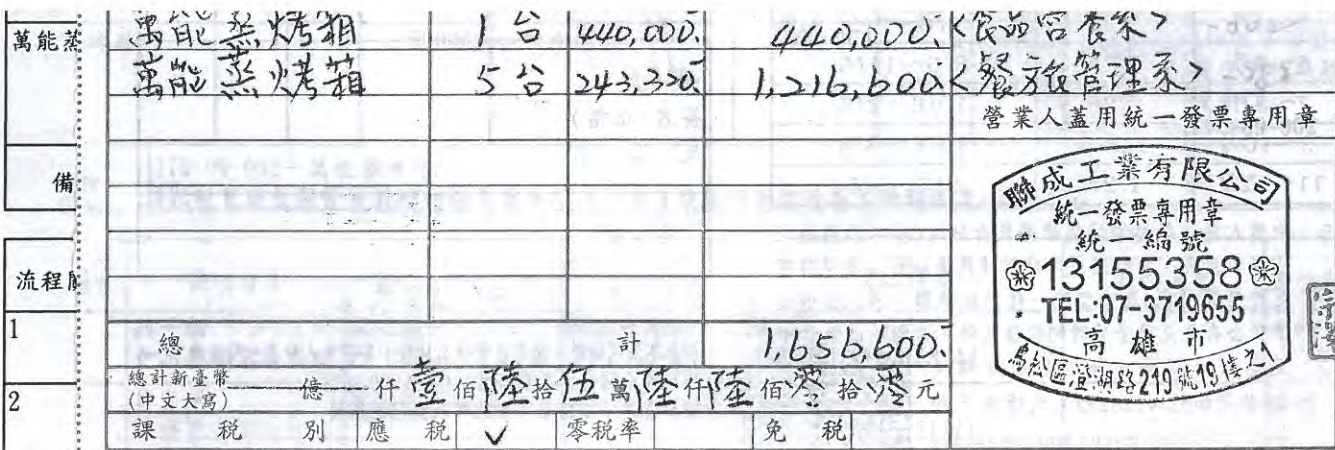 萬能蒸
萬能蒸烤箱 1台 440,000. 440,000. <食品營養系>
萬能蒸烤箱 5台 243,320. 1,216,600. <餐旅管理系>
營業人蓋用統一發票專用章
備
聯成工業有限公司
統一發票專用章
統一編號
13155358
TEL:07-3719655
高雄市
鳥松區澄湖路219號19樓之1
流程
1
總 計 1,656,600.
總計新臺幣
(中文大寫) 億 仟壹佰陸拾伍萬陸仟陸佰零拾零元
2
課 稅 別 應 稅 ✓ 零稅率 免 稅